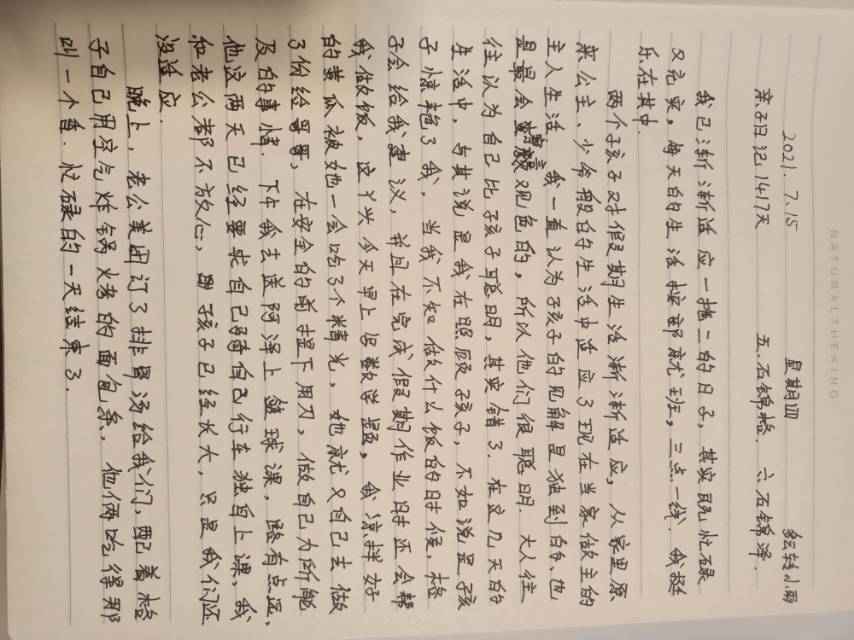 NATURALTHEKING
2021.7.15 星期四 多云转小雨
亲子日记1417天 五.石锦格. 六.石锦泽.
我已渐渐适应一拖二的日子,其实既忙碌
又充实,每天的生活按部就班,三点一线.我挺
乐在其中.
两个孩子对假期生活渐渐适应,从家里原
来公主、少爷般的生活中适应了现在当家做主的
主人生活.我一直认为孩子的见解是独到的、也
是最会察言观色的,所以他们很聪明.大人往
往认为自己比孩子聪明,其实错了.在这几天的
生活中,与其说是我在照顾孩子,不如说是孩
子惊艳了我,当我不知做什么饭的时候,格
子会给我建议,并且在完成假期作业时还会帮
我做饭,这丫头今天早上没数学题,我凉拌好
的黄瓜被她一会吃了个精光,她就又自己去做
了份给哥哥,在安全的前提下用刀,做自己力所能
及的事情.下午我去送阿泽上篮球课,路有点远,
他这两天已经要求自己骑自行车独自上课,我
和老公都不放心,孩子已经长大,只是我们还
没适应.
晚上,老公美团订了排骨汤给我们,配着格
子自己用空气炸锅烤的面包条,他俩吃得那
叫一个香.忙碌的一天结束了.